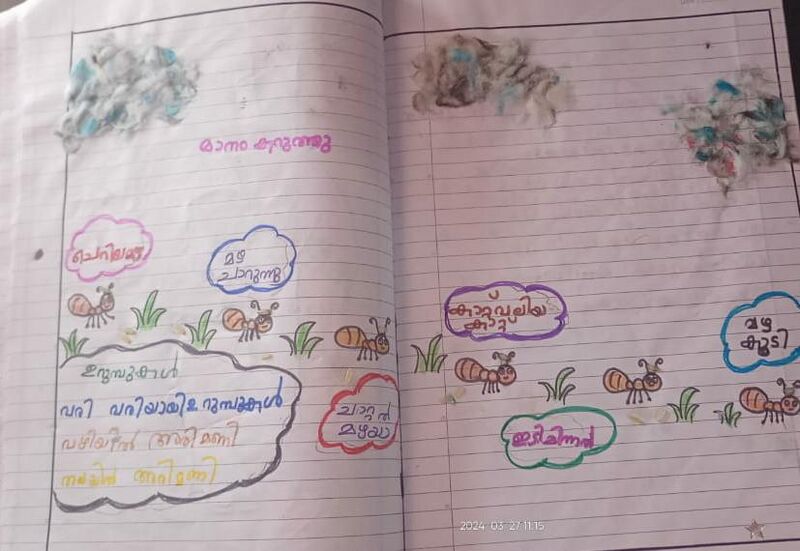 മാനം കറുത്തു
ചെറിയമഴ
മഴ
ചാറുന്നു
ഉറുമ്പുകൾ
വരി വരിയായിഉറുമ്പുകൾ
വഴിയിൽ അരിമണി
നിരയിൽ അരിമണി
ചാറ്റൽ
മഴയാ
കാറ്റ് വലിയ
കാറ്റ്
ഇടിമിന്നൽ
മഴ
കൂടി
2024-03-27 11:15